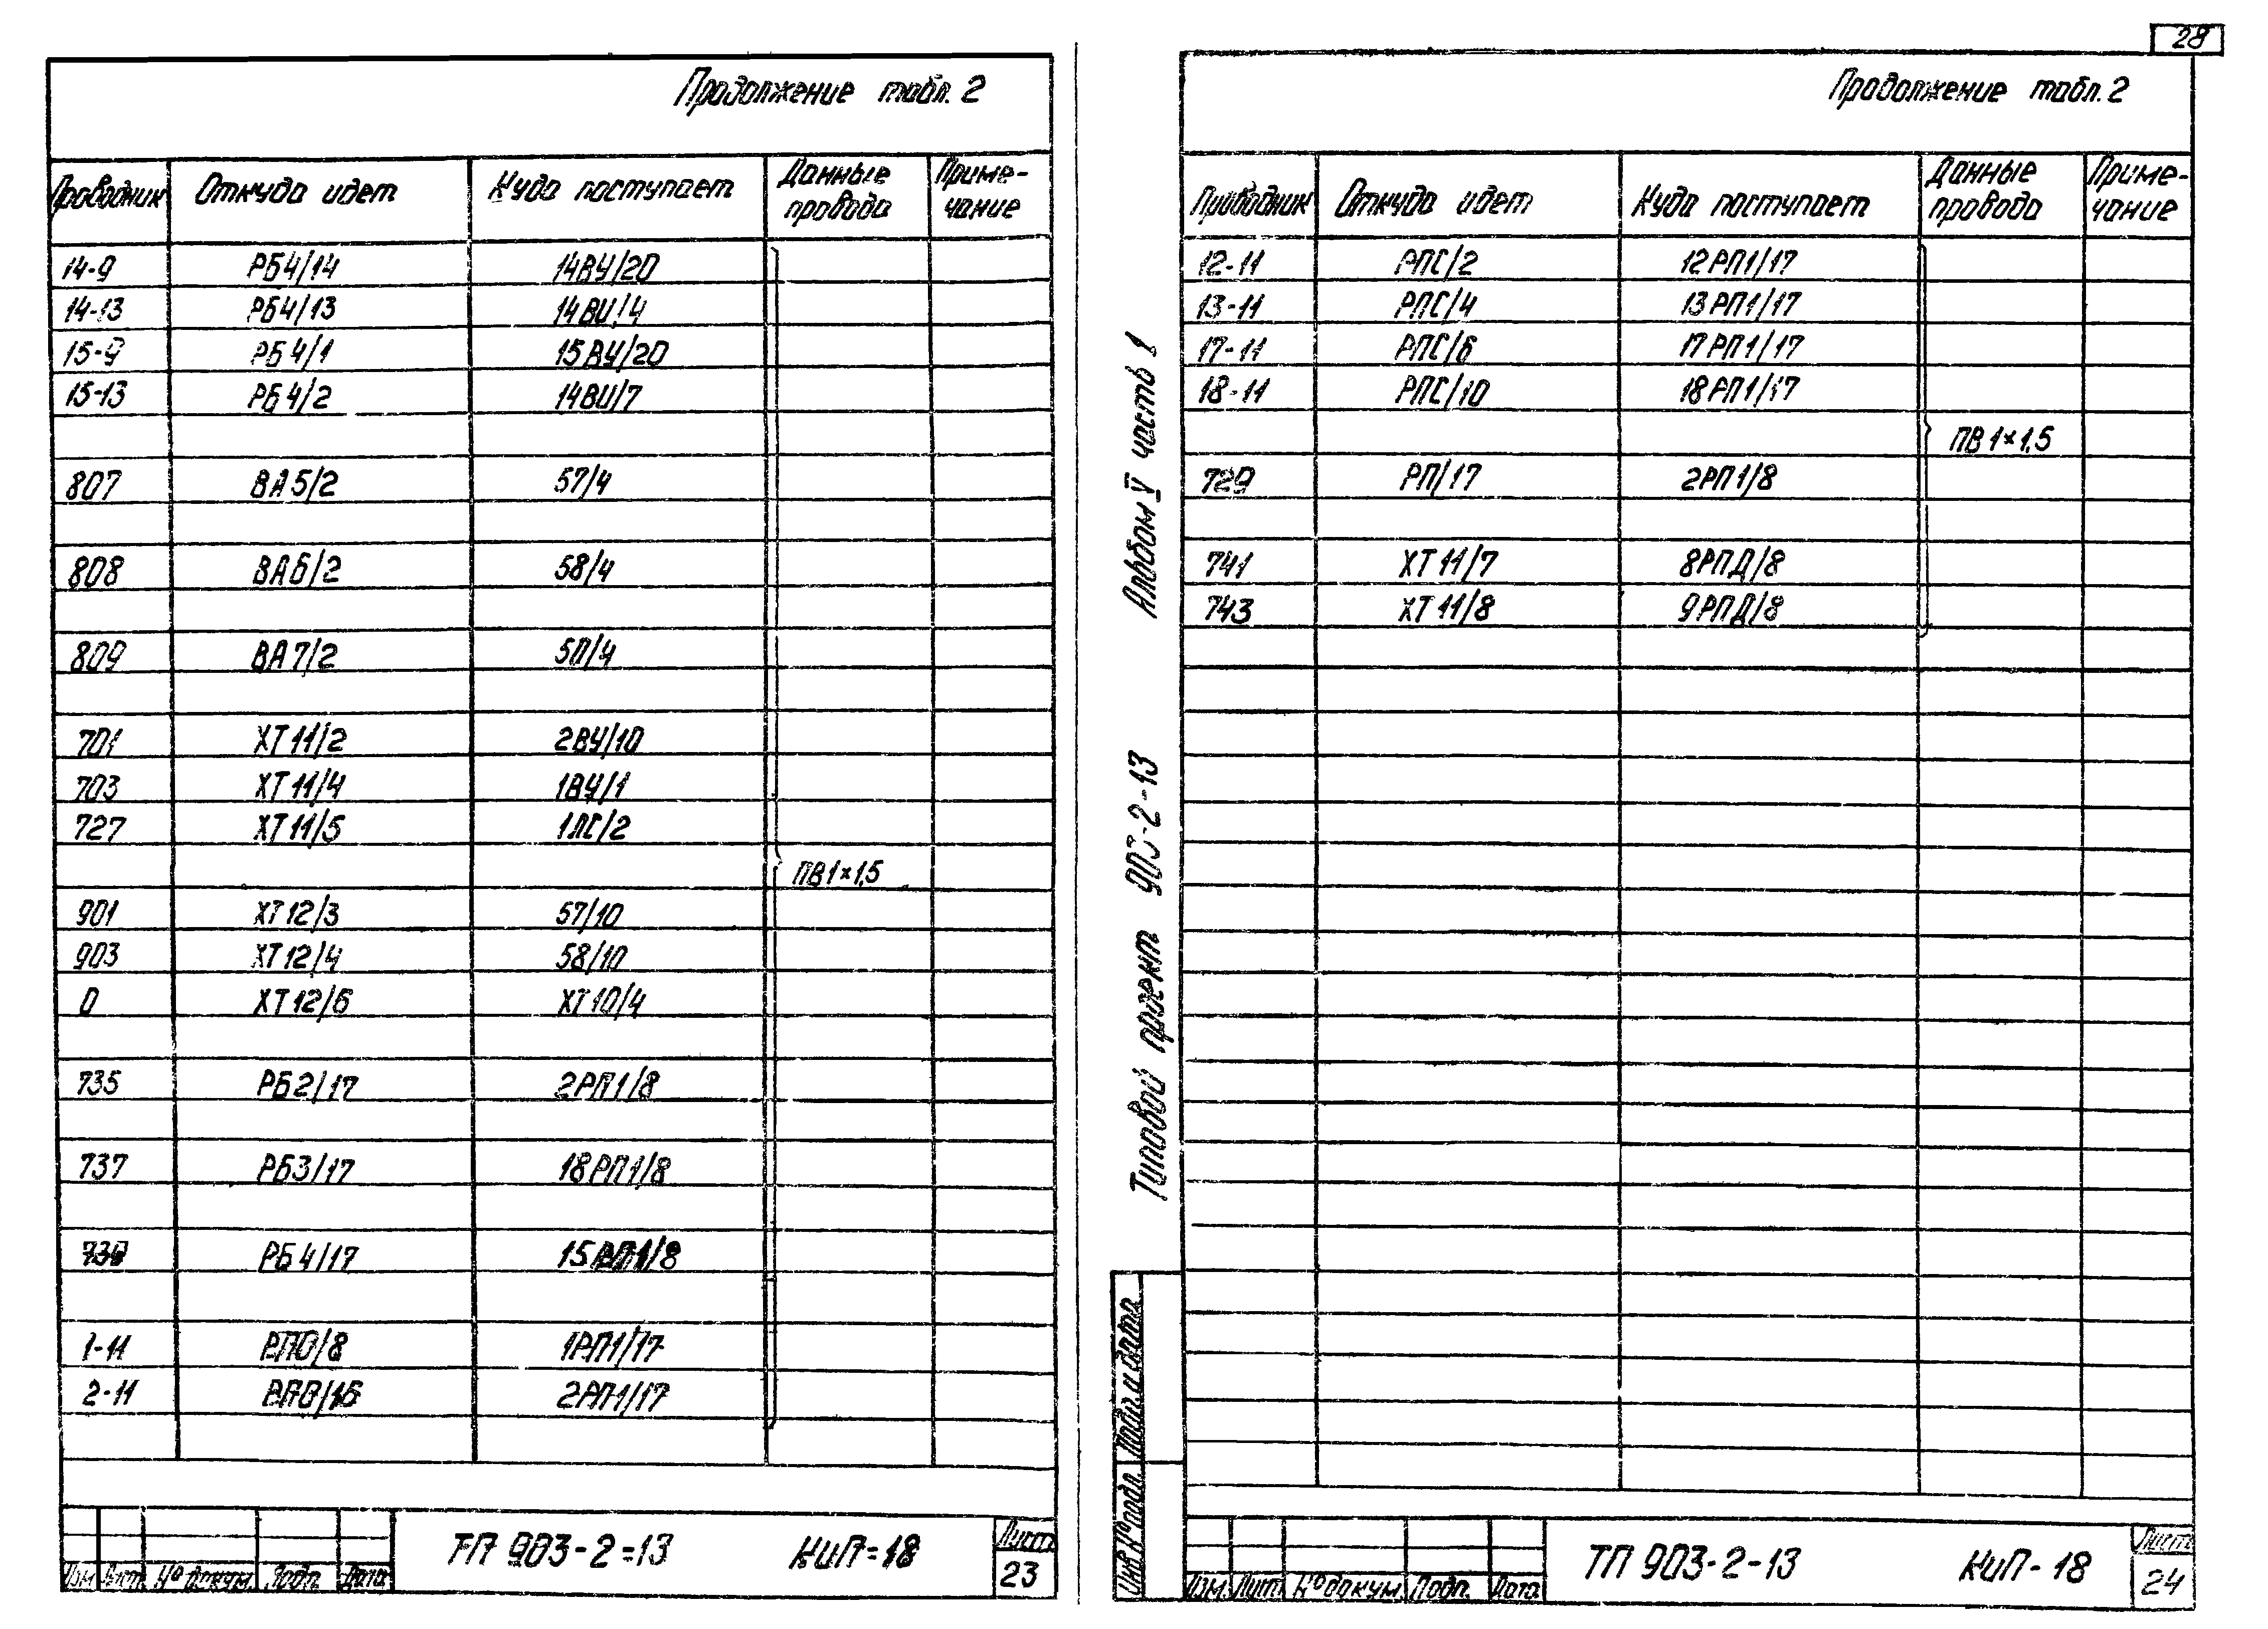 28
Продолжение табл. 2
Проводник Откуда идет Куда поступает Данные провода Приме-чание
14-9 РБ4/14 14ВУ/20
14-13 РБ4/13 14ВU/4
15-9 РБ4/1 15ВУ/20
15-13 РБ4/2 14ВU/7
807 ВА5/2 57/4
808 ВА6/2 58/4
809 ВА7/2 5П/4
701 ХТ11/2 2ВУ/10
703 ХТ11/4 1ВУ/1
727 ХТ11/5 1ЛС/2
ПВ1×1,5
901 ХТ12/3 57/10
903 ХТ12/4 58/10
0 ХТ12/6 ХТ10/4
735 РБ2/17 2РП1/8
737 РБ3/17 18РП1/8
РБ4/17 15РП1/8
1-11 РП0/8 1РП1/17
2-11 2РП1/17
Изм Лист №докум. Подп. Дата
ТП 903-2-13 КиП-18
Лист
23
Продолжение табл. 2
Проводник Откуда идет Куда поступает Данные провода Приме-чание
12-11 РПС/2 12РП1/17
13-11 РПС/4 13РП1/17
17-11 РПС/6 17РП1/17
18-11 РПС/10 18РП1/17
ПВ1×1,5
729 РП/17 2РП1/8
741 ХТ11/7 8РПД/8
743 ХТ11/8 9РПД/8
Типовой проект 903-2-13 Альбом V часть 1
Инв.№подл. Подп.и дата
Изм. Лист №докум. Подп. Дата
ТП 903-2-13 КиП-18
Лист
24